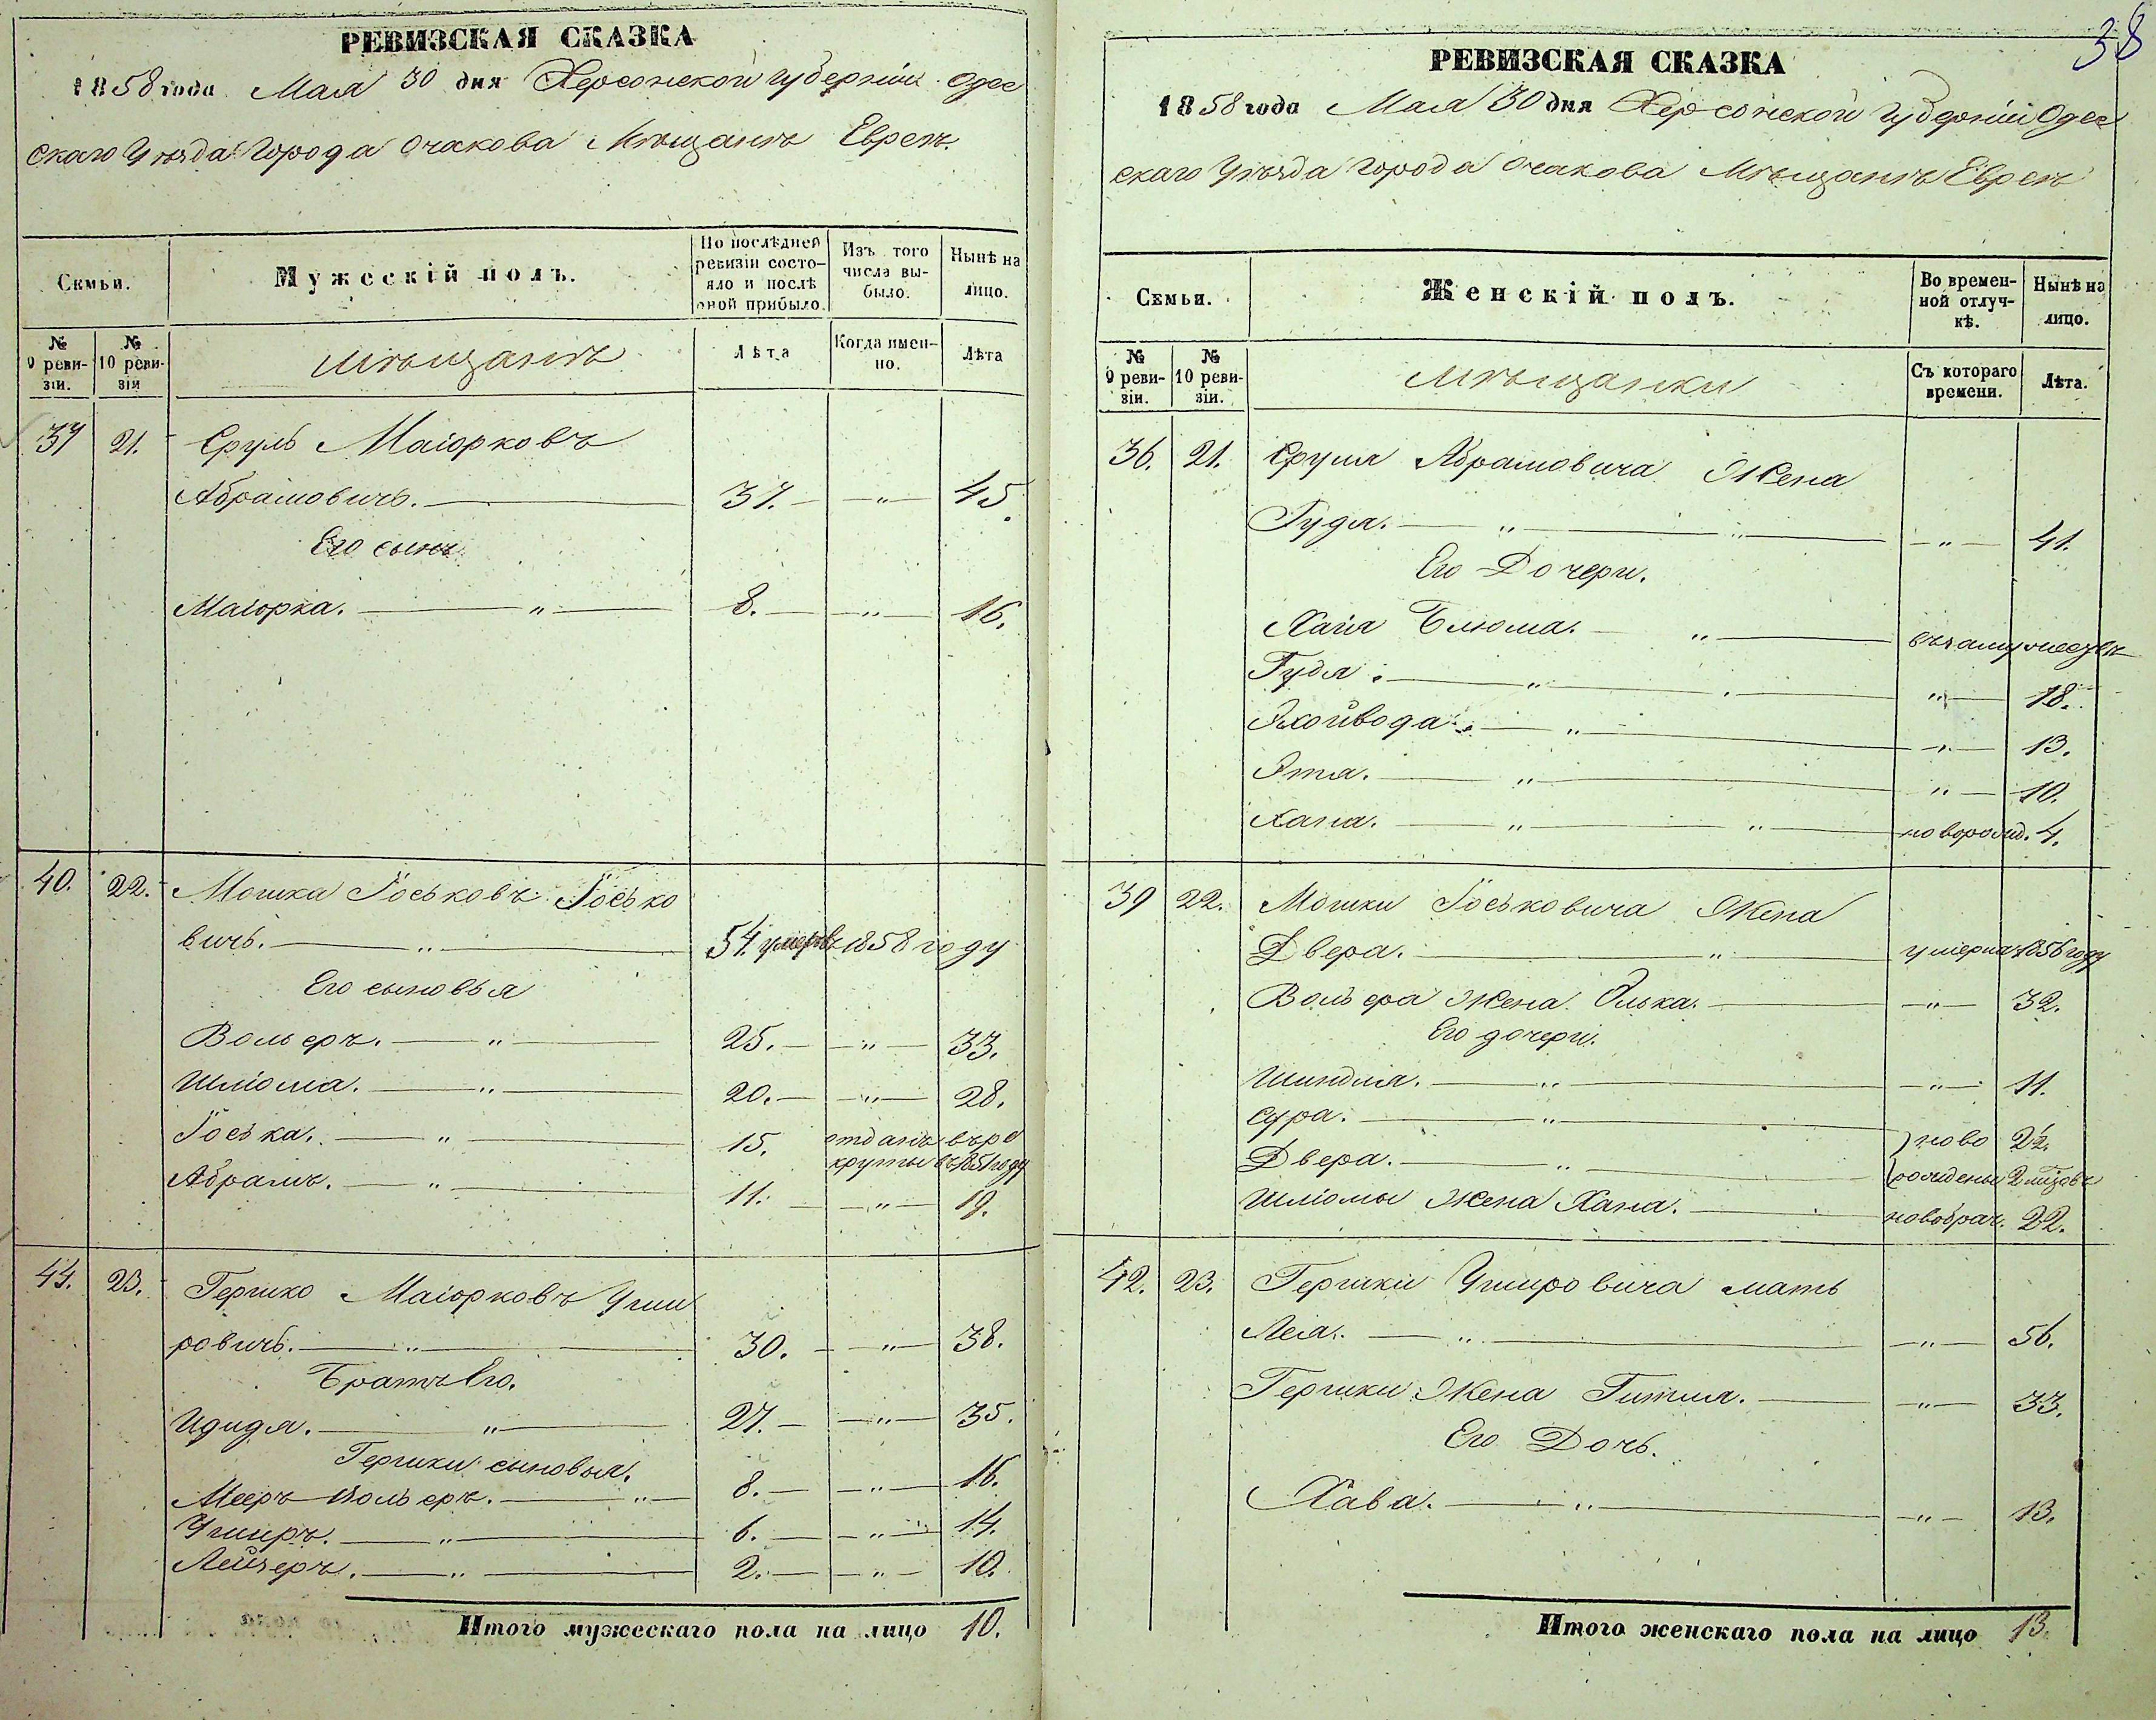 РЕВИЗСКАЯ СКАЗКА
1858 года Мая 30 дня Херсонской Губерніи Одес
скаго Уѣзда Города Очакова Мѣщанъ Евреевъ
Семьи.
Мужескій полъ.
По послѣдней ревизіи состо-
яло и послѣ оной прибыло.
Изъ того числа вы-
было.
Нынѣ на лицо.
№ 9 реви-
зіи.
№ 10 реви-
зіи
мѣщанъ
Лѣта
Когда имен-
но.
Лѣта
37 21. Сруль Маіорковъ
Абрамовичъ. 37. — " — 45.
Его сынъ
Маіорка. — " — 8. — " — 16.
40. 22. Мошка Іоськовъ Іосько
вичъ. — " — 54. умеръ въ 1858 году
Его сыновья
Вольеръ. — " — 25. — " — 33.
Шліома. — " — 20. — " — 28.
Іоська. — " — 15. отданъ въ ре
круты въ 1851 году
Абрамъ. — " — 11. — " — 19.
44. 23. Гершко Маіорковъ Уши
ровичъ. — " — 30. — " — 38.
Братъ Его.
Идидя. — " — 27. — " — 35.
Гершки сыновья.
Мееръ Вольеръ. — " — 8. — " — 16.
Уширъ. — " — 6. — " — 14.
Лейзеръ. — " — 2. — " — 10.
Итого мужескаго пола на лицо 10.
38
РЕВИЗСКАЯ СКАЗКА
1858 года Мая 30 дня Херсонской Губерніи Одес
скаго Уѣзда Города Очакова Мѣщанъ Евреевъ
Семьи.
Женскій полъ.
Во времен-
ной отлуч-
кѣ.
Нынѣ на лицо.
№ 9 реви-
зіи.
№ 10 реви-
зіи.
мѣщанки
Съ котораго времени.
Лѣта.
36. 21. Сруля Абрамовича Жена
Гудя. — " — " — 41.
Его Дочери.
Хайя Блюма. — " — въ замужествѣ
Гудя. — " — " — 18.
Яхойвода. — " — " — 13.
Этя. — " — " — 10.
Хана. — " — " — новорожд. 4.
39 22. Мошки Іоськовича Жена
Двера. — " — умерла 1856 году
Вольера Жена Олька. — " — 32.
Его дочери.
Шиндля. — " — " — 11.
Сура. — " — ново 2½.
Двера. — " — рождены 2 мѣсяцовъ
Шліомы Жена Хана. — новобрач. 22.
42. 23. Гершки Ушировича мать
Лея. — " — " — 56.
Гершки Жена Гитля. — " — 33.
Его Дочь.
Хава. — " — " — 13.
Итого женскаго пола на лицо 13.